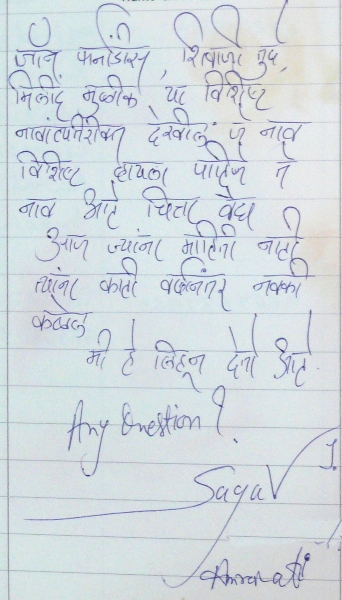 जॉन फर्नांडिस, शिवाजी तुपे,
मिलींद मुळीक या विशिष्ट
नावांव्यतिरीक्त देखील जे नाव
विशिष्ट व्हायला पाहिजे ते
नाव आहे चित्रा वैद्य
आज ज्यांना माहिती नाही
त्यांना काही वर्षानंतर नक्की
कळेल
मी हे लिहून देतो आहे.
Any Question?
Sagar
Amravati